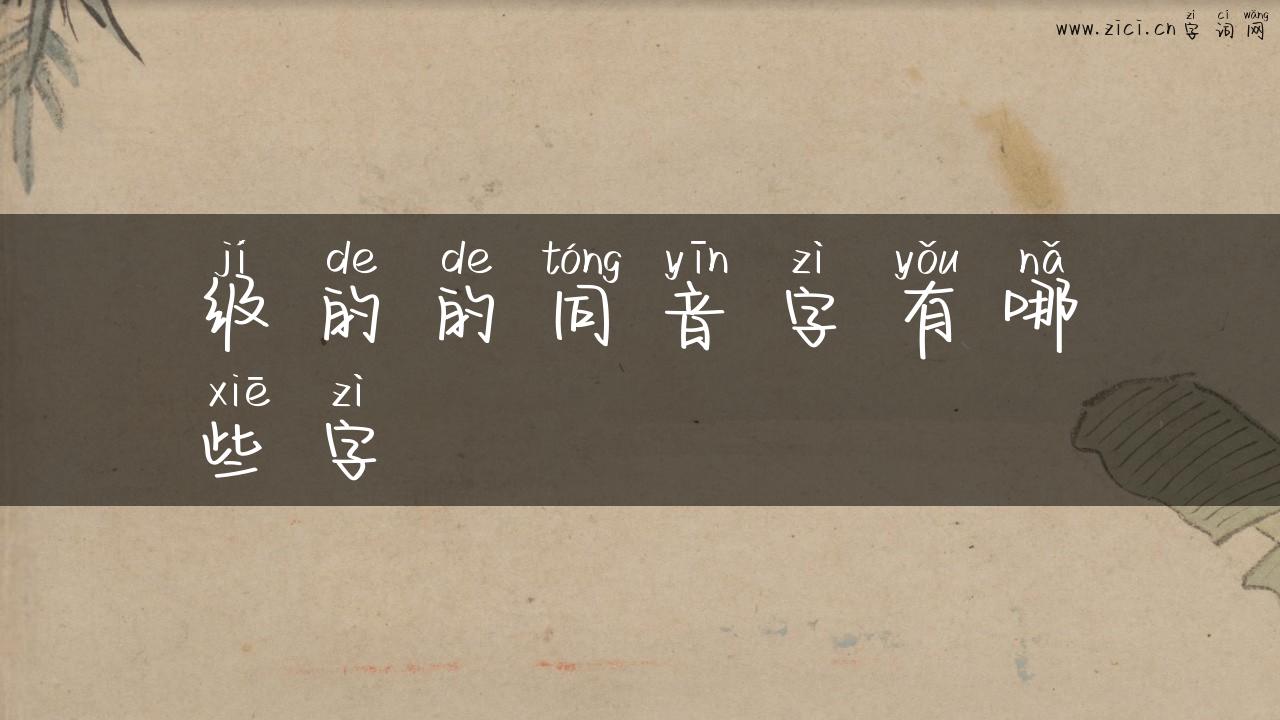 zì cí wǎng
www.zici.cn字词网
jí de de tóng yīn zì yǒu nǎ
级的的同音字有哪
xiē zì
些字